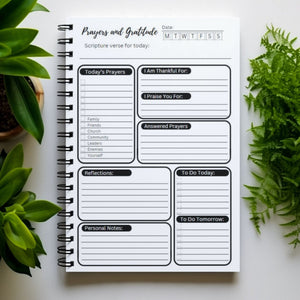 Prayers and Gratitude
Date:
M T W T F S S
Scripture verse for today:
Today's Prayers
I Am Thankful For:
I Praise You For:
Family
Friends
Church
Community
Leaders
Enemies
Yourself
Answered Prayers
Reflections:
To Do Today:
Personal Notes:
To Do Tomorrow: